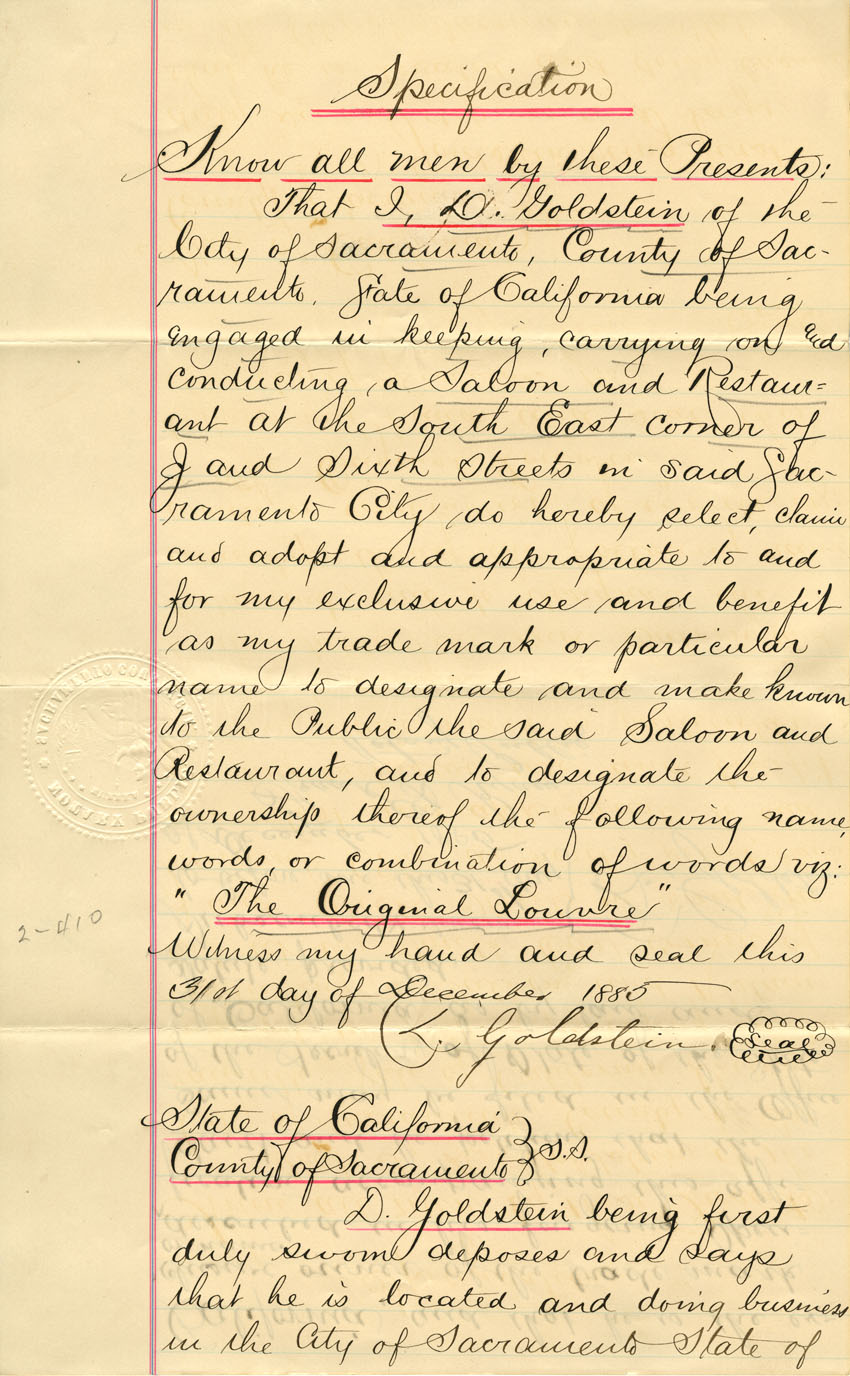 Specification
Know all men by these Presents:
That I, D. Goldstein of the
City of Sacramento, County of Sac-
ramento, State of California being
engaged in keeping, carrying on and
conducting a Saloon and Restaur=
ant at the South East corner of
J and Sixth Streets in said Sac-
ramento City do hereby select, claim
and adopt and appropriate to and
for my exclusive use and benefit
as my trade mark or particular
name to designate and make known
to the Public the said Saloon and
Restaurant, and to designate the
ownership thereof the following name,
words, or combination of words viz:
" The Original Louvre "
2-410
Witness my hand and seal this
31st day of December 1885
Goldstein. Seal
State of California
County of Sacramento } S.S.
D. Goldstein being first
duly sworn deposes and says
that he is located and doing business
in the City of Sacramento State of